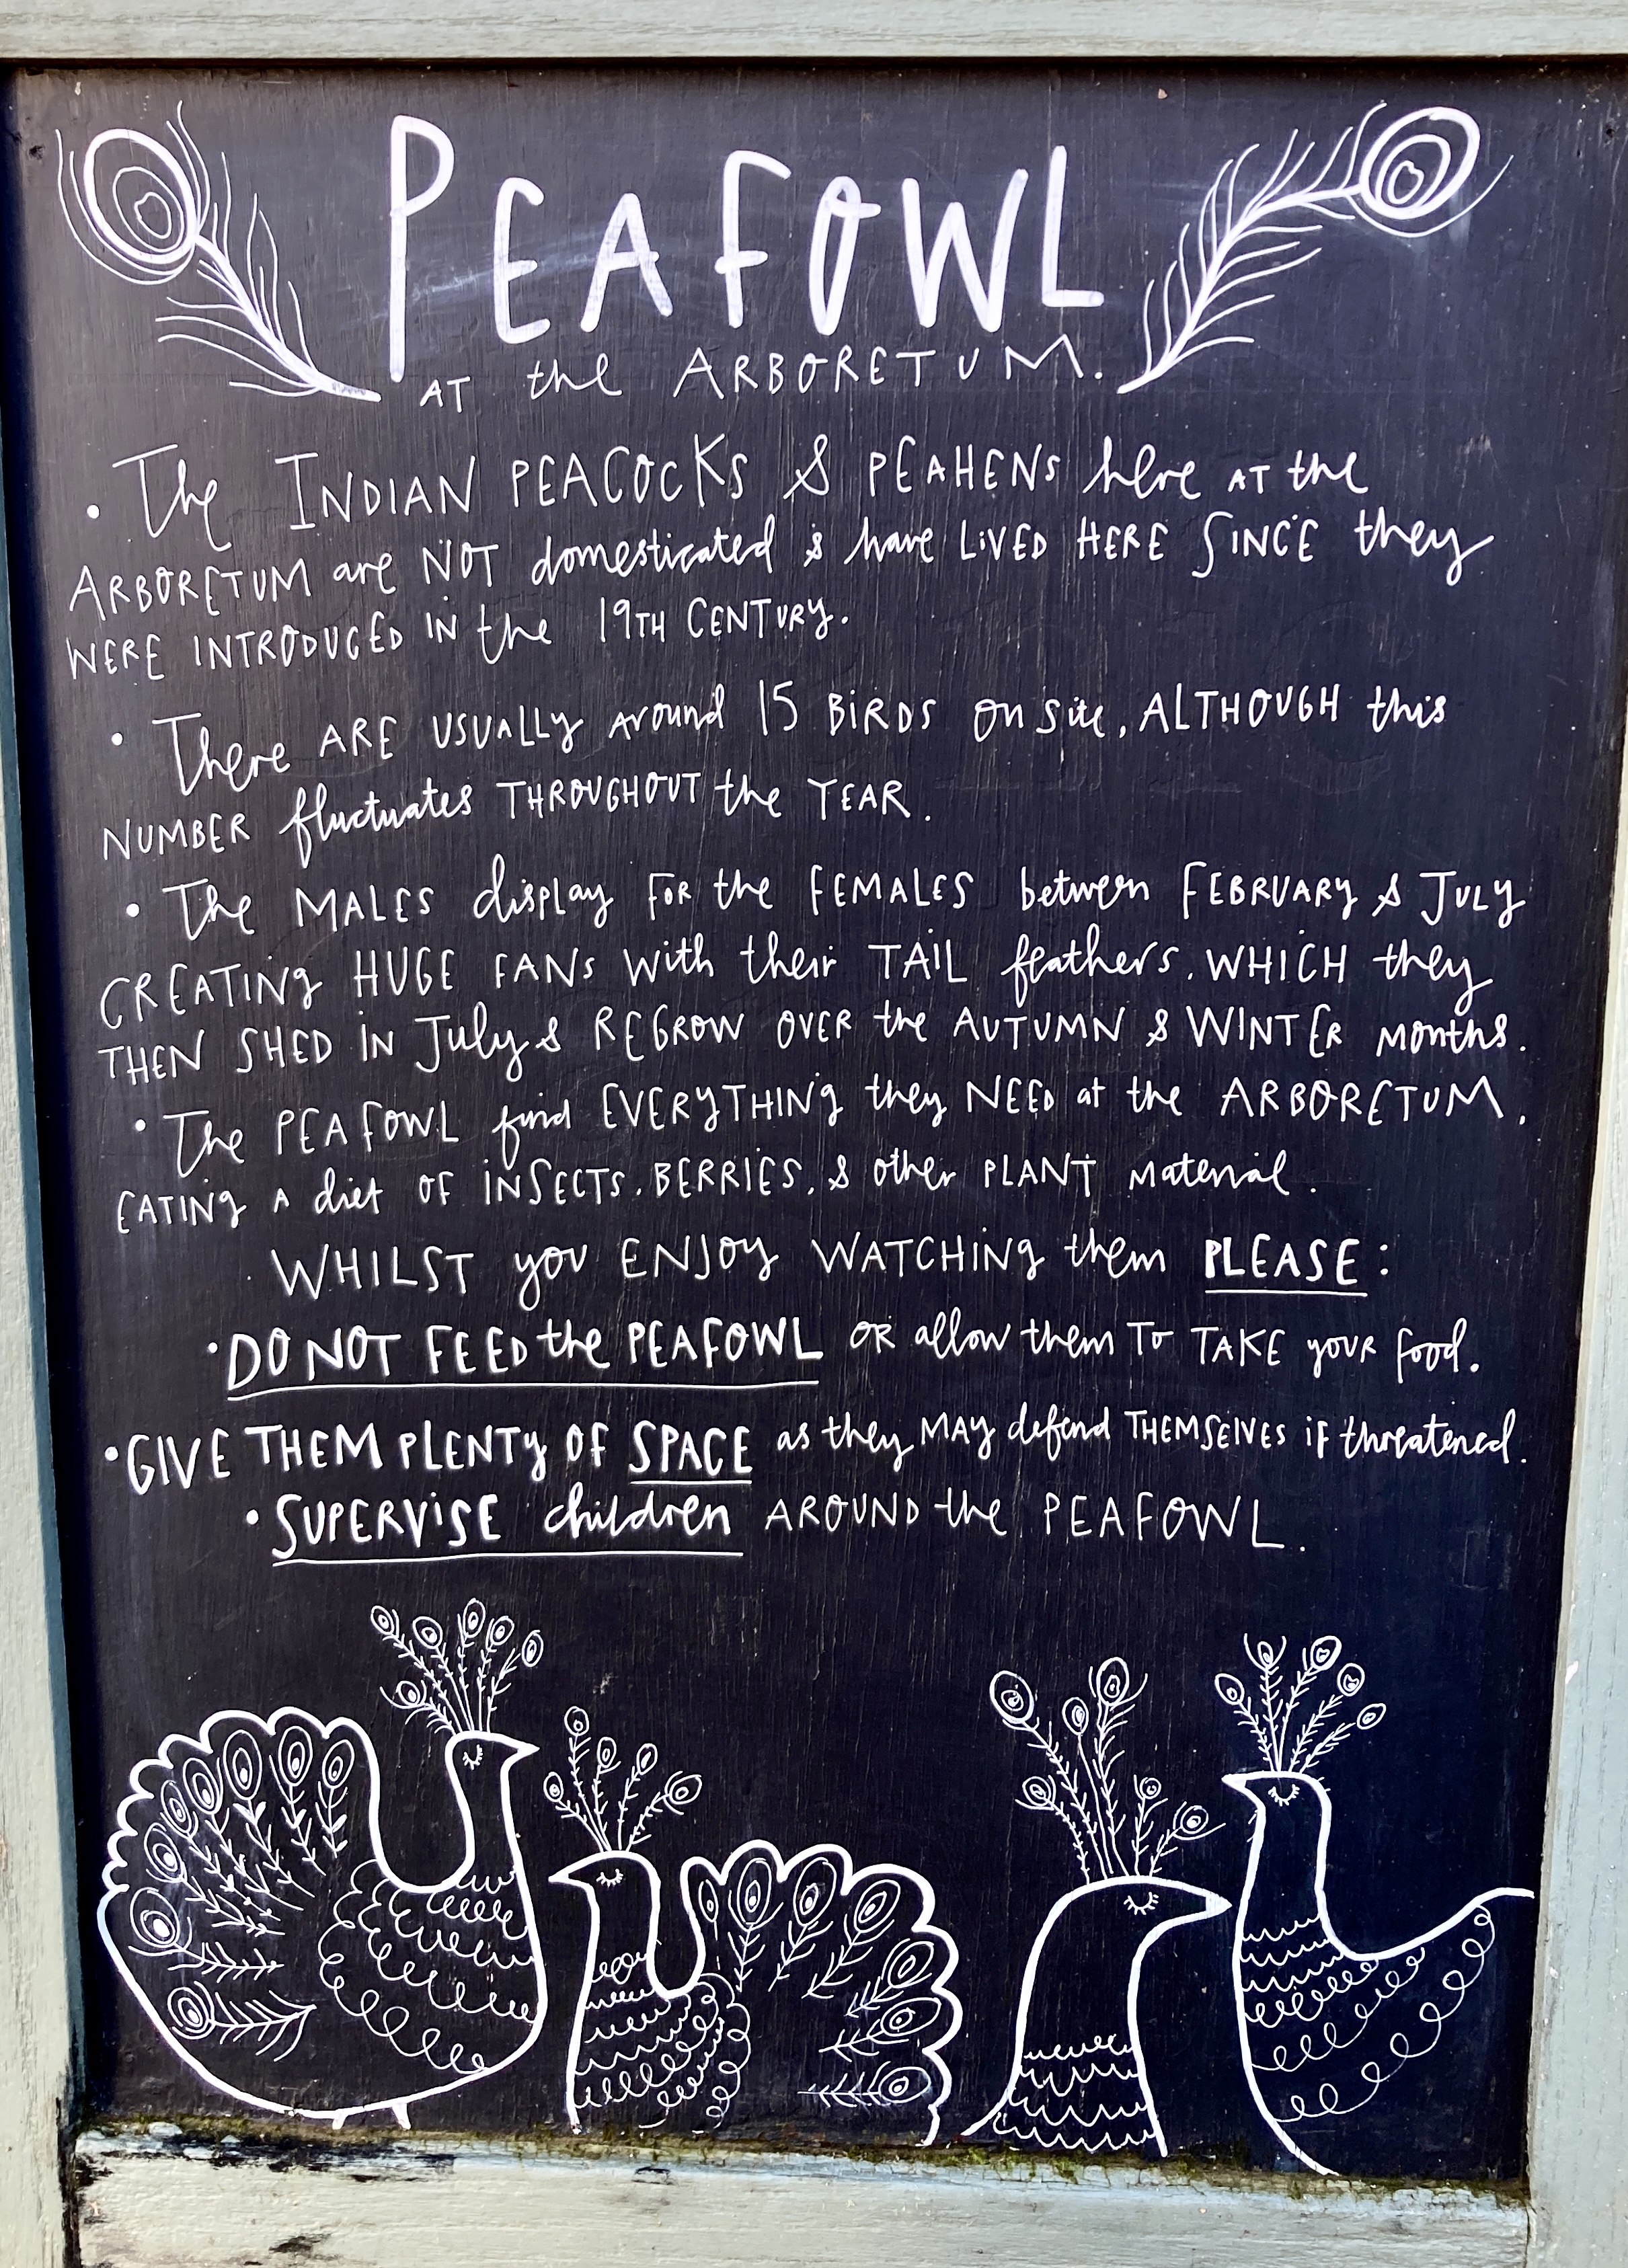 PEAFOWL
AT the ARBORETUM.
• The INDIAN PEACOCKS & PEAHENS here AT the
ARBORETUM are NOT domesticated & have LIVED HERE SINCE they
WERE INTRODUCED IN the 19TH CENTURY.
• There ARE USUALLY around 15 BIRDS on site, ALTHOUGH this
NUMBER fluctuates THROUGHOUT the YEAR.
• The MALES display FOR the FEMALES between FEBRUARY & JULY
CREATING HUGE FANS with their TAIL feathers, WHICH they
THEN SHED IN July & REGROW OVER the AUTUMN & WINTER months.
• The PEAFOWL find EVERYTHING they NEED at the ARBORETUM,
EATING A diet OF INSECTS, BERRIES, & other PLANT material.
. WHILST you ENJOY WATCHING them PLEASE:
• DO NOT FEED the PEAFOWL OR allow them TO TAKE your food.
• GIVE THEM PLENTY OF SPACE as they MAY defend THEMSELVES IF threatened.
• SUPERVISE children AROUND the PEAFOWL.